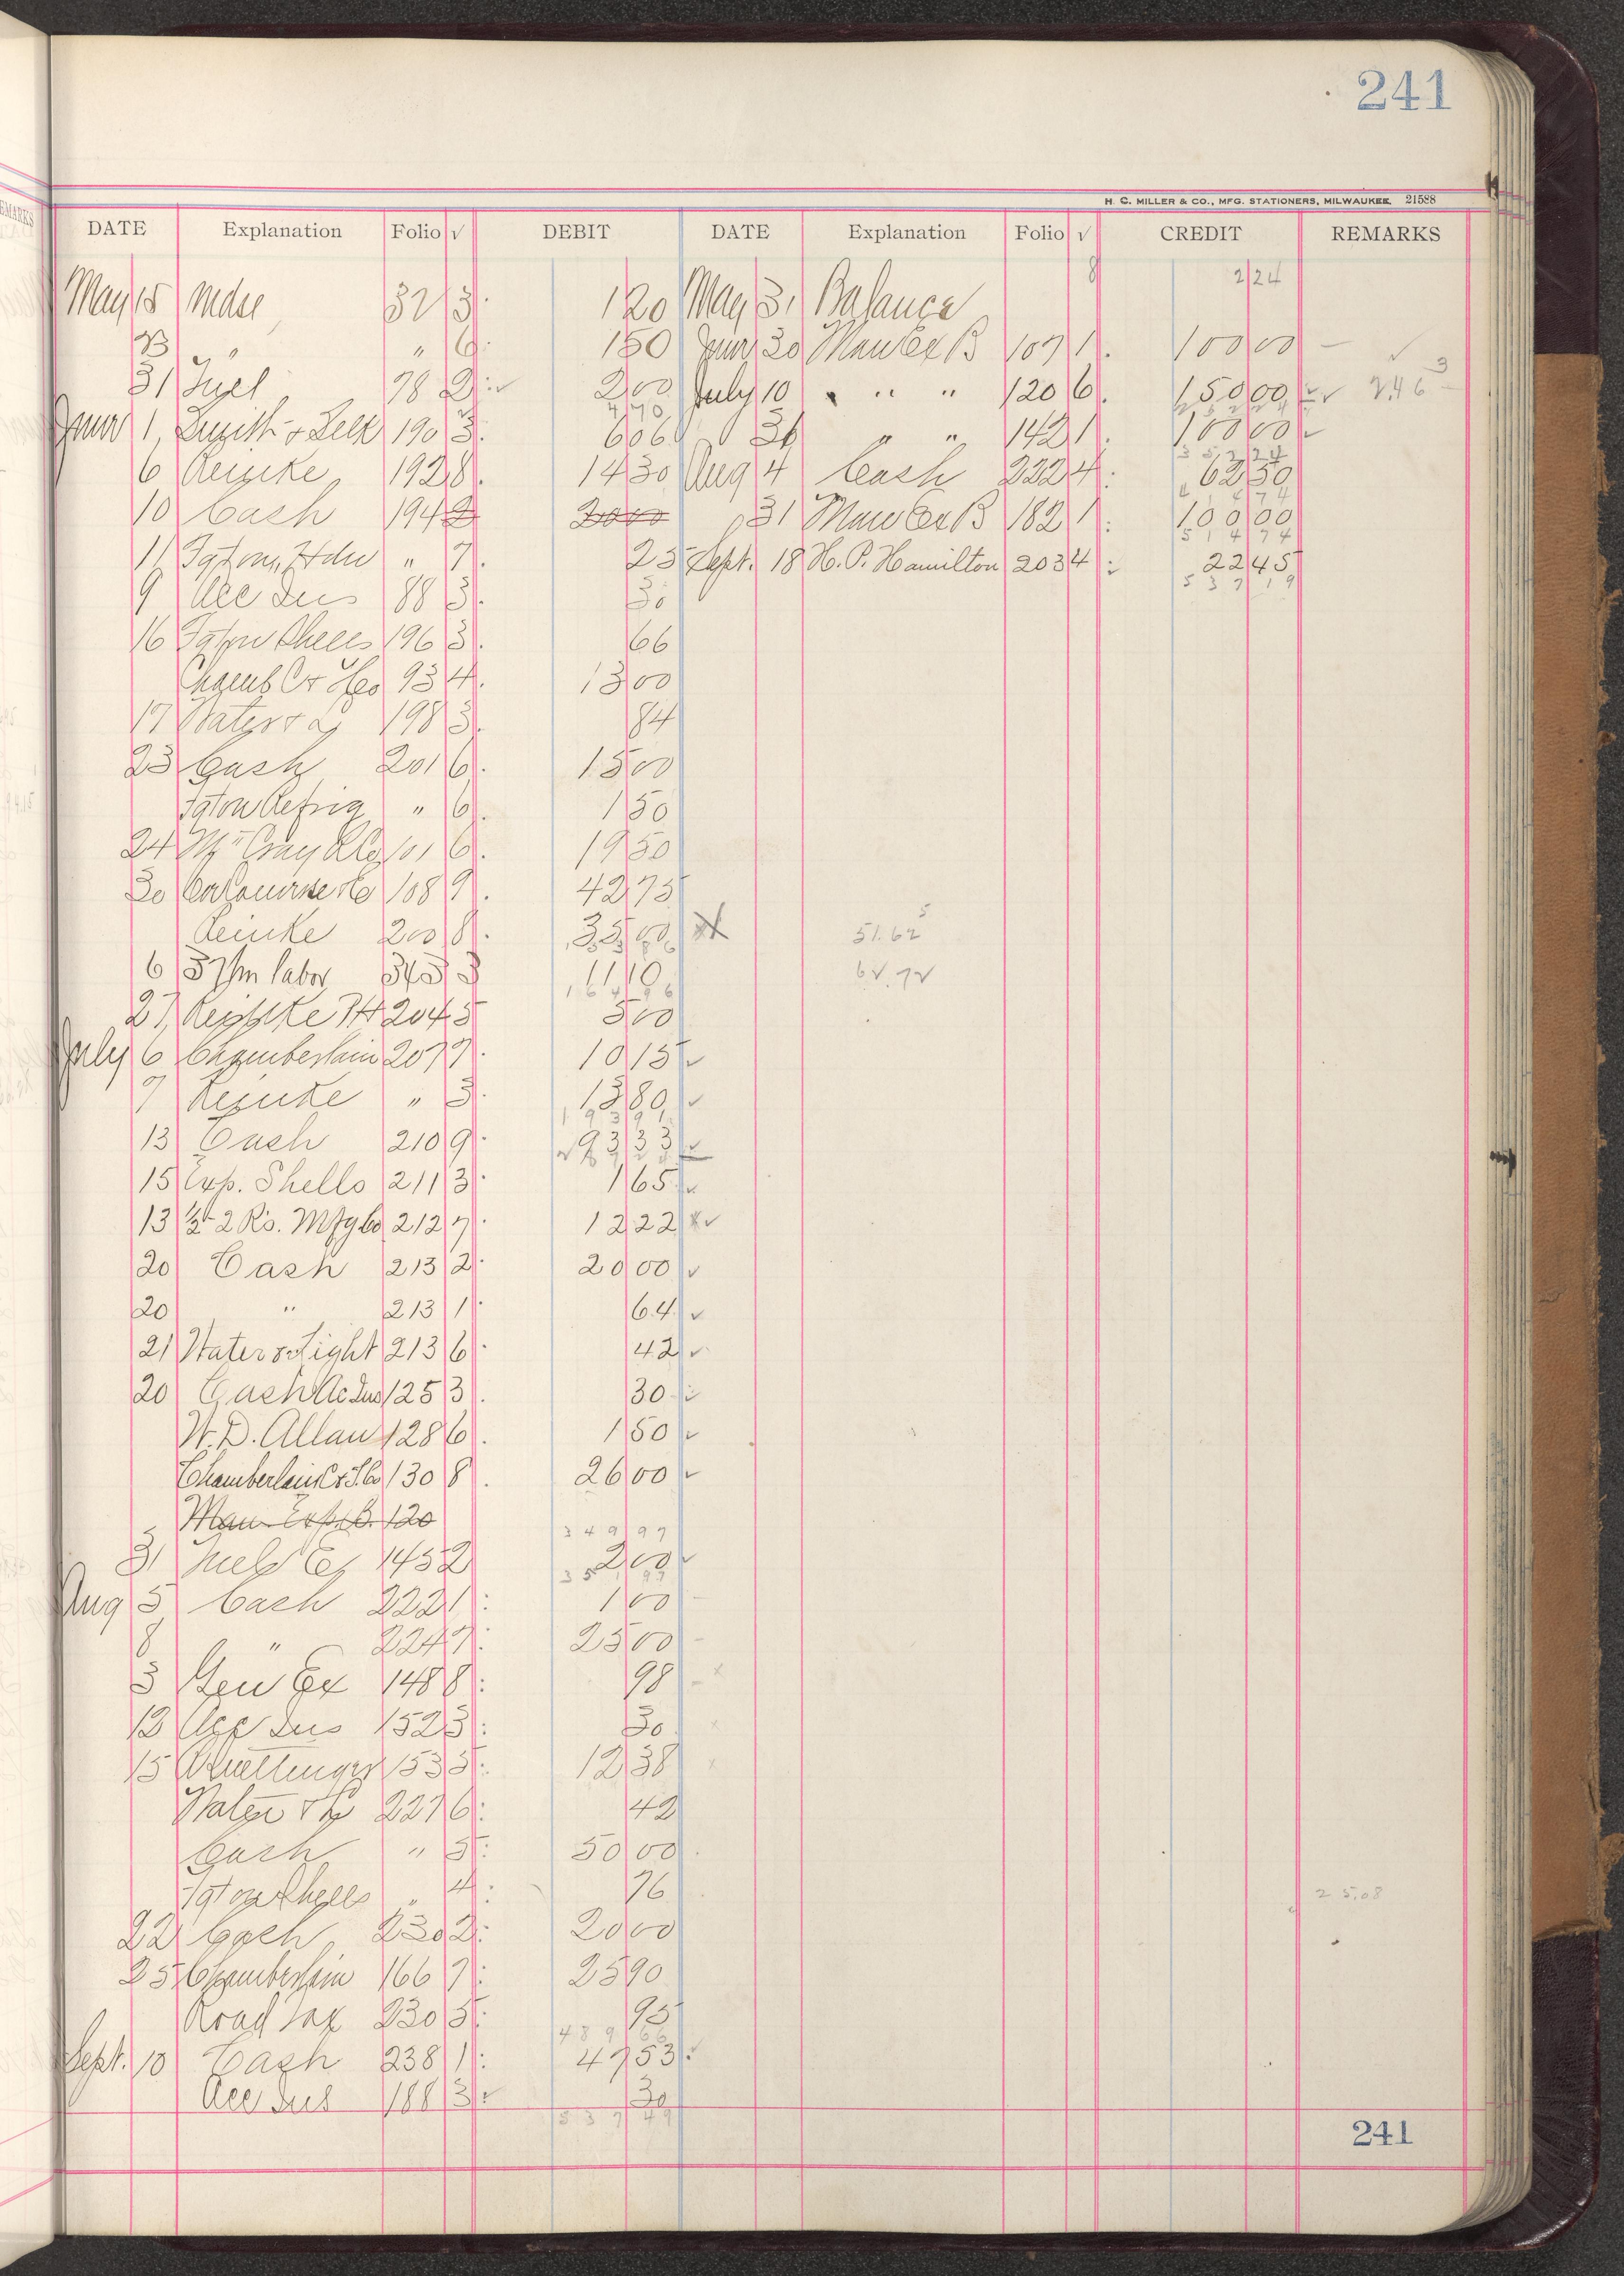 241
H. C. MILLER & CO., MFG. STATIONERS, MILWAUKEE. 21588
DATE Explanation Folio √ DEBIT DATE Explanation Folio √ CREDIT REMARKS
May 15 Mdse 32 3 1 20 May 31 Balance 8 2 24
" " 6 1 50 June 30 Man Ex B 107 1 100 00
31 Fuel 78 2 2 00 July 10 " " " 120 6 150 00 2.46 3
4 70 2 5 2 2 4
June 1 190 3 6 06 31 " " 142 1 100 00
3 5 2 2 4
6 Reinke 192 8 14 30 Aug 4 Cash 222 4 62 50
4 1 4 7 4
10 Cash 194 2 20 00 31 Man Ex B 182 1 100 00
5 1 4 7 4
11 " 7 25 Sept. 18 H. P. Hamilton 203 4 22 45
5 3 7 1 9
9 Acc Ins 88 3 30
16 Shells 196 3 66
Chamb C & Co 93 4 13 00
17 Water & L 198 3 84
23 Cash 201 6 15 00
Refrig " 6 1 50
24 McCray R Co 101 6 19 50
30 108 9 42 75
Reinke 200 8 35 00 51.62 5
6 labor 345 3 11 10 62.72
1 6 4 9 6
27 Reinke 204 5 5 00
July 6 Chamberlain 207 7 10 15
7 Reinke " 3 13 80
1 9 3 9 1
13 Cash 210 9 93 33
15 Exp. Shells 211 3 1 65
13 ½-2 Rs. Mfg Co 212 7 12 22
20 Cash 213 2 20 00
20 " 213 1 64
21 Water & Light 213 6 42
20 Cash Ac Ins 125 3 30
W. D. Allan 128 6 1 50
Chamberlain C & S. Co 130 8 26 00
Man. Exp. B. 120
3 4 9 9 7
31 Fuel Ex 145 2 2 00
3 5 1 9 7
Aug 5 Cash 222 1 1 00
8 " 224 7 25 00
3 Gen Ex 148 8 98
13 Acc Ins 152 3 30
15 153 5 12 38
Water & L 227 6 42
Cash " 5 50 00
Shells " 4 76
2 5.08
22 Cash 230 2 20 00
25 Chamberlain 166 7 25 90
Road Tax 230 5 95
4 8 9 6 6
Sept. 10 Cash 238 1 47 53
Acc Ins 188 3 30
5 3 7 4 9
241